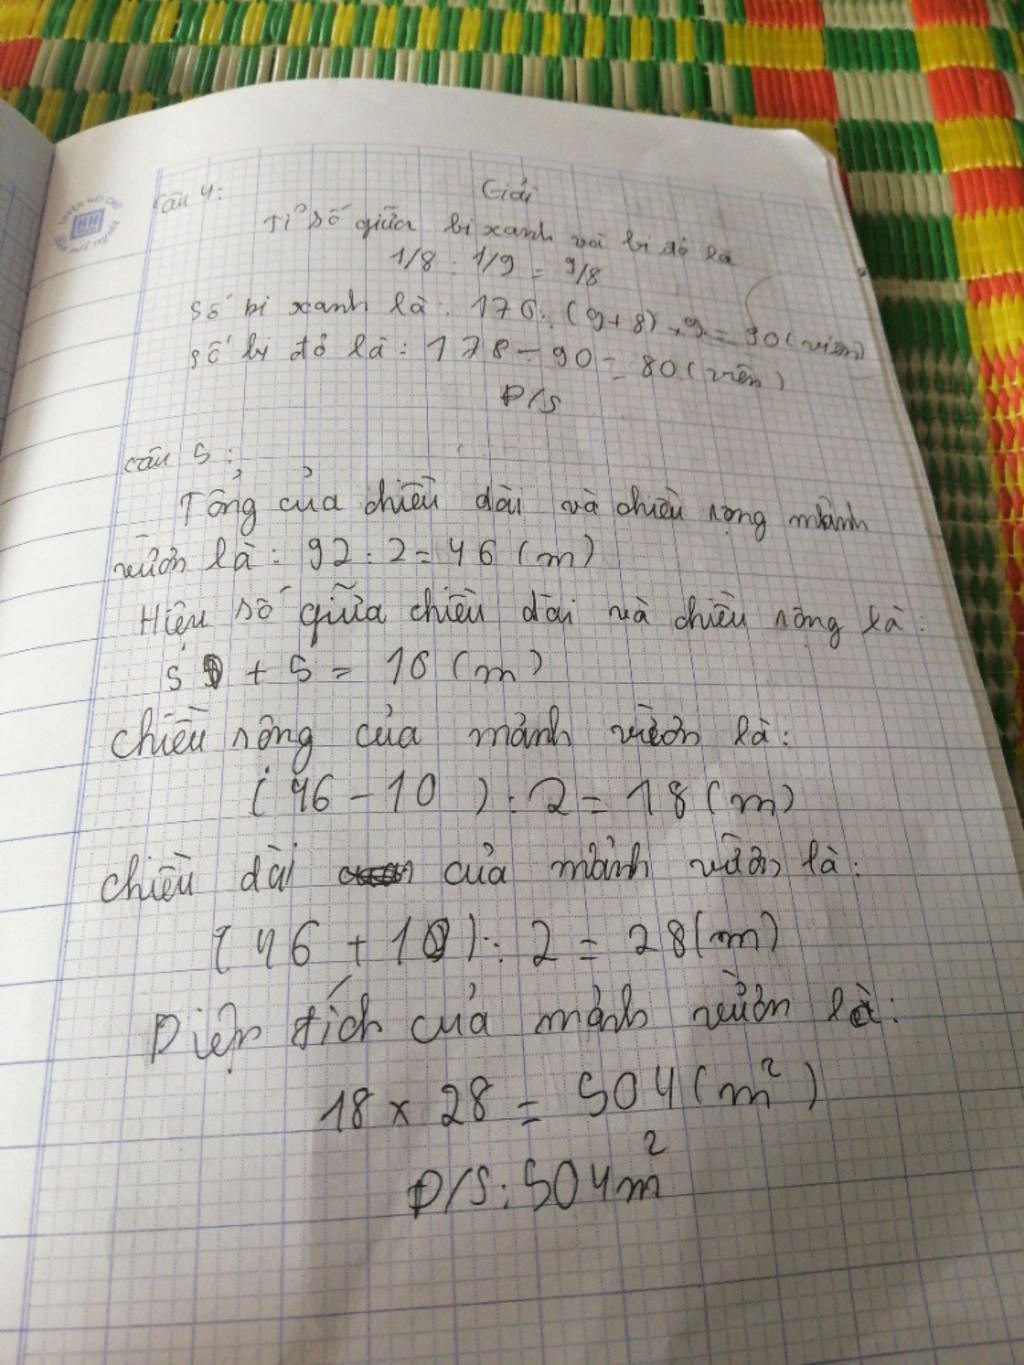 Câu 4:
Giải
Tỉ số giữa bi xanh và bi đỏ là
1/8 : 1/9 = 9/8
Số bi xanh là: 170: (9+8) x9 = 90 (viên)
Số bi đỏ là: 170 - 90 = 80 (viên)
Đ/S
Câu 5:
Tổng của chiều dài và chiều rộng mảnh
vườn là: 92 : 2 = 46 (m)
Hiệu số giữa chiều dài và chiều rộng là:
5 + 5 = 10 (m)
Chiều rộng của mảnh vườn là:
(46 - 10) : 2 = 18 (m)
Chiều dài của mảnh vườn là:
(46 + 10) : 2 = 28 (m)
Diện tích của mảnh vườn là:
18 x 28 = 504 (m²)
Đ/S: 504m²